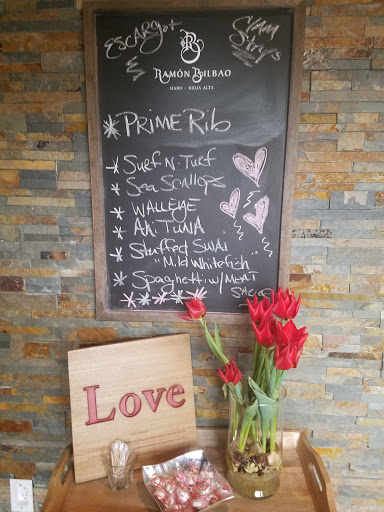 ESCARgot
Clam Strips
RB
RAMÓN BILBAO
HARO - RIOJA ALTA
PRIME Rib
Surf N. Turf
Sea Scallops
WALLEYE
Ahi TUNA
Stuffed SWAI
"Mild Whitefish"
Spaghetti w/ MEAT
SAUCE
Love